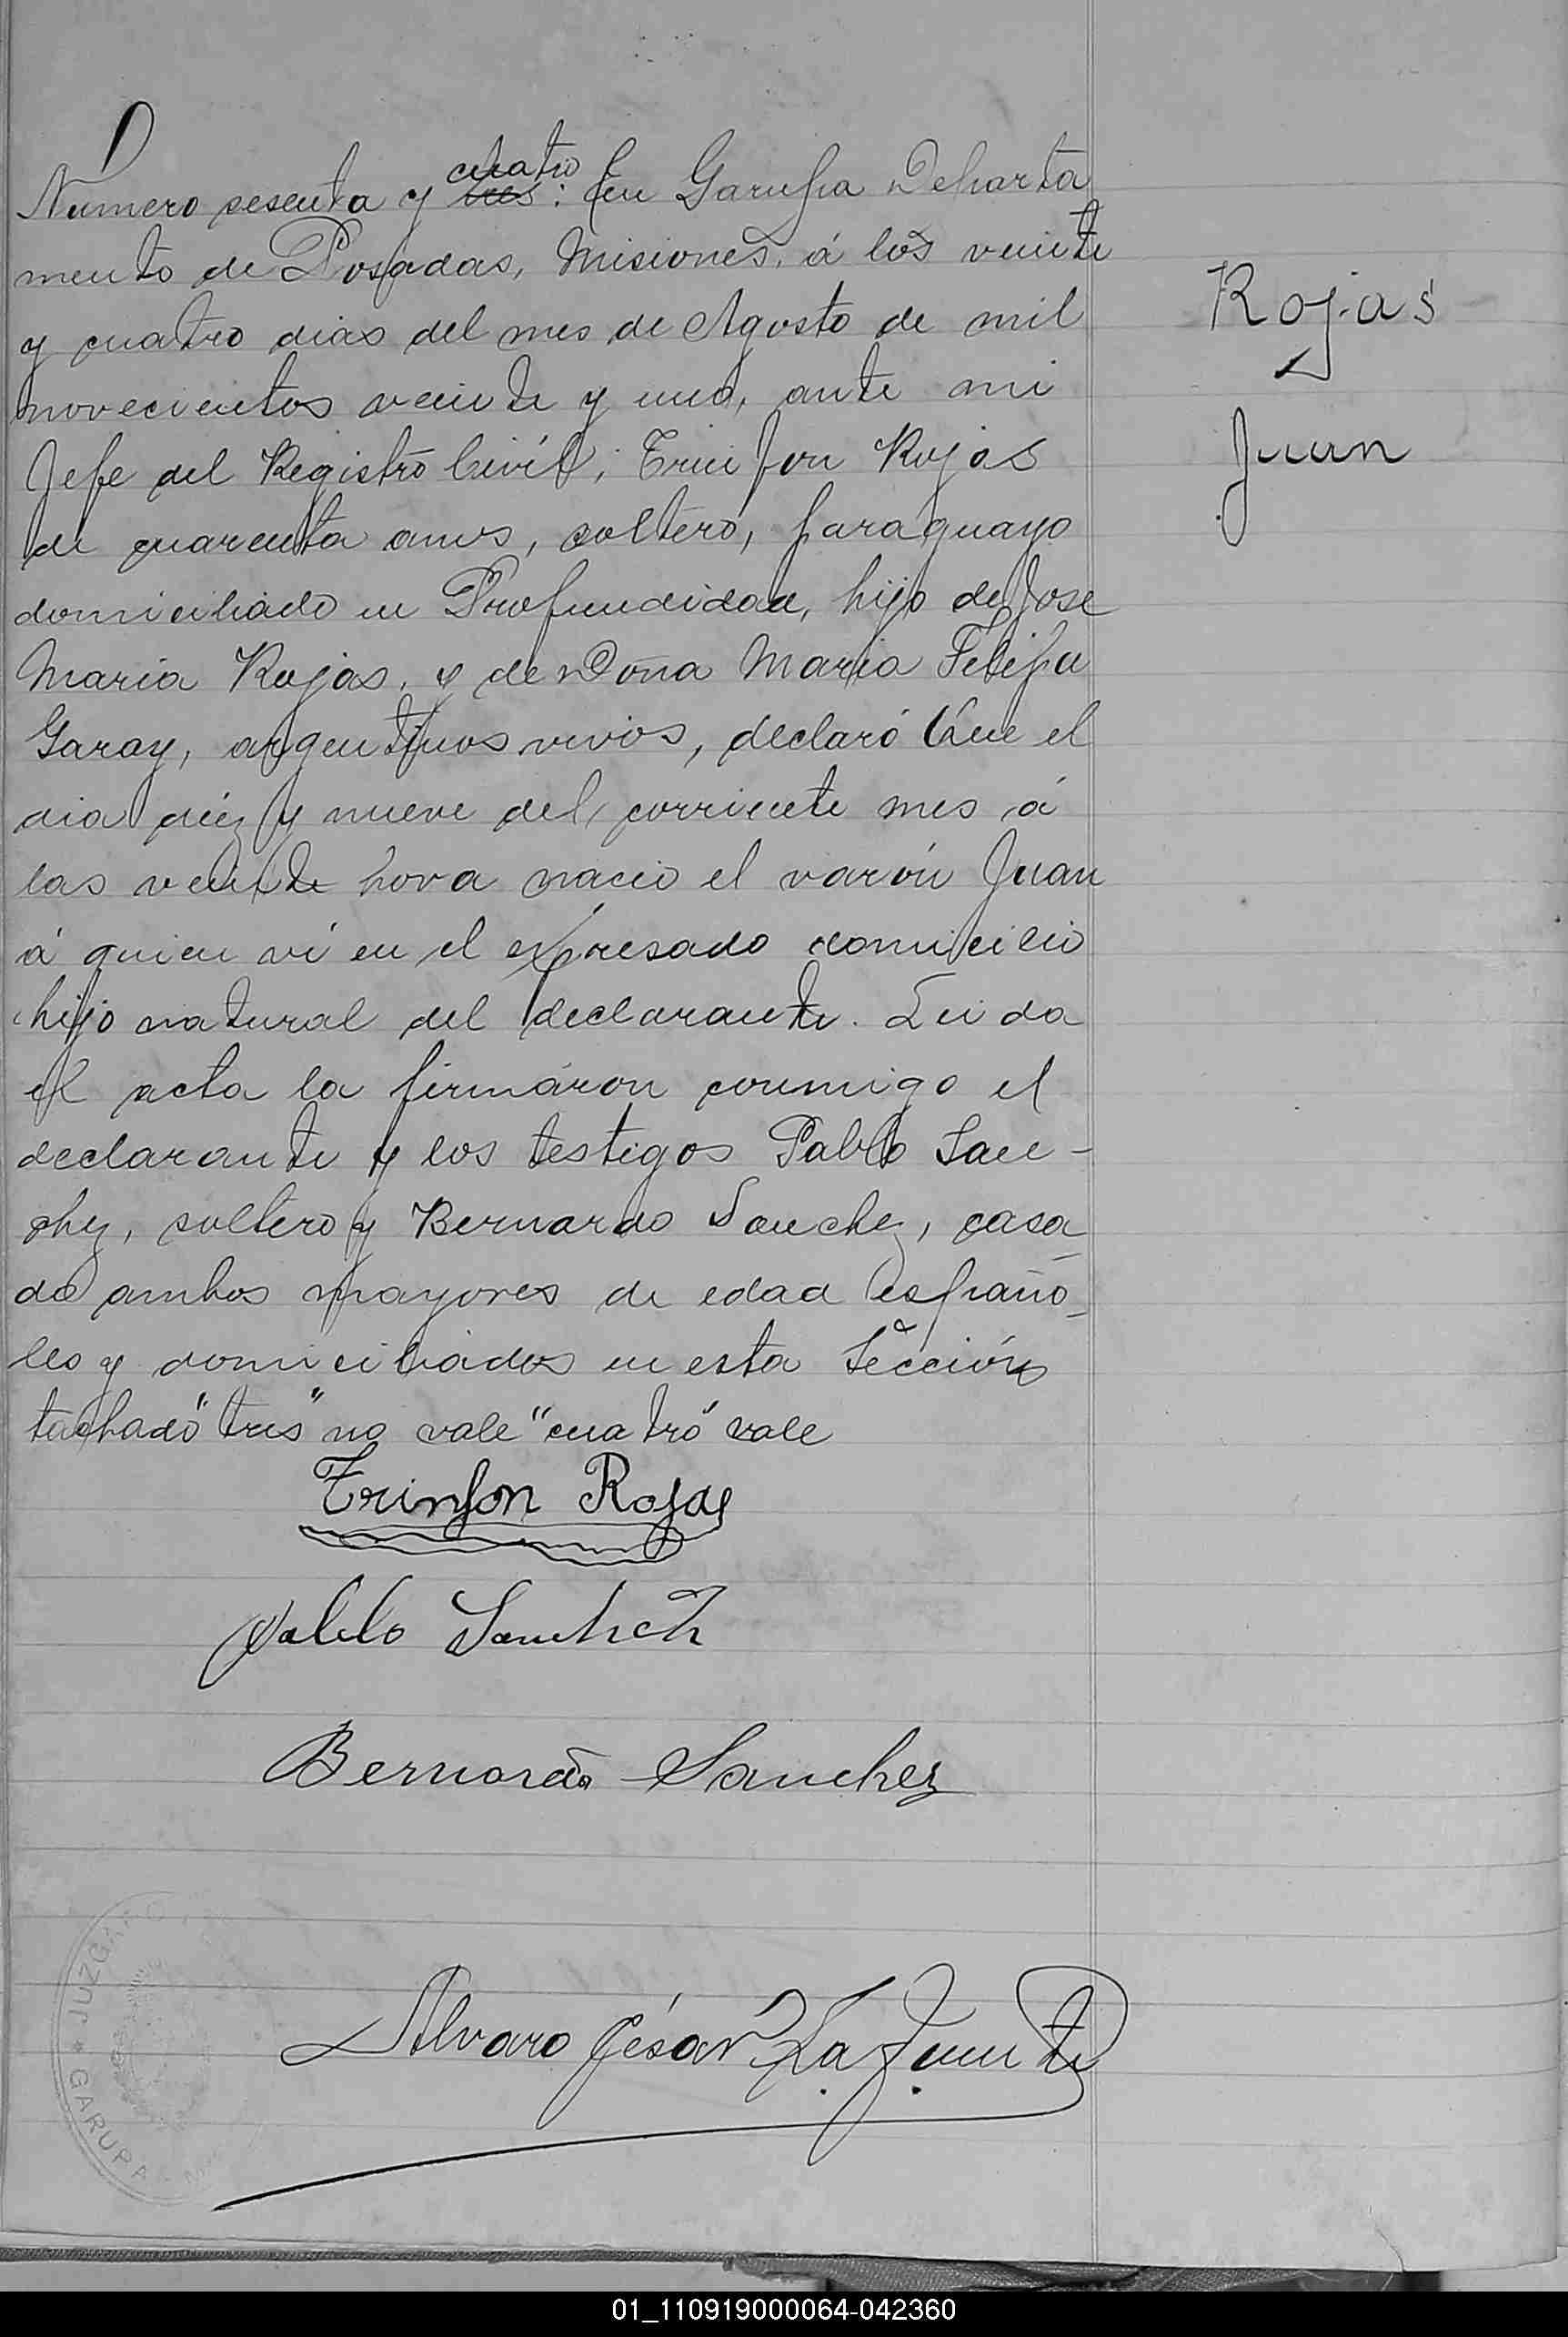 Numero sesenta y tres cuatro: En Garupa Departa
mento de Posadas, Misiones, á los veinte
y cuatro dias del mes de Agosto de mil
novecientos veinte y uno, ante mi
Jefe del Registro Civil, Trinfon Rojas
de cuarenta anos, soltero, paraguayo
domiciliado en Profundidad, hijo de Jose
Maria Rojas, y de Doña Maria Felipa
Garay, argentinos vivos, declaró Que el
dia diez y nueve del corriente mes á
las veinte hora nació el varón Juan
á quien ví en el expresado domicilio
hijo natural del declarante. Leida
el acta la firmáron conmigo el
declarante y los testigos Pablo San-
chez, soltero y Bernardo Sanchez, casa
do ambos mayores de edad españo_
les y domiciliados en esta Sección
tachado "tres" no vale "cuatro" vale
Trinfon Rojas
Pablo Sanchez
Bernardo Sanchez
Alvaro César La Fuente
Rojas
Juan
JUZGADO
GARUPA
01_110919000064-042360